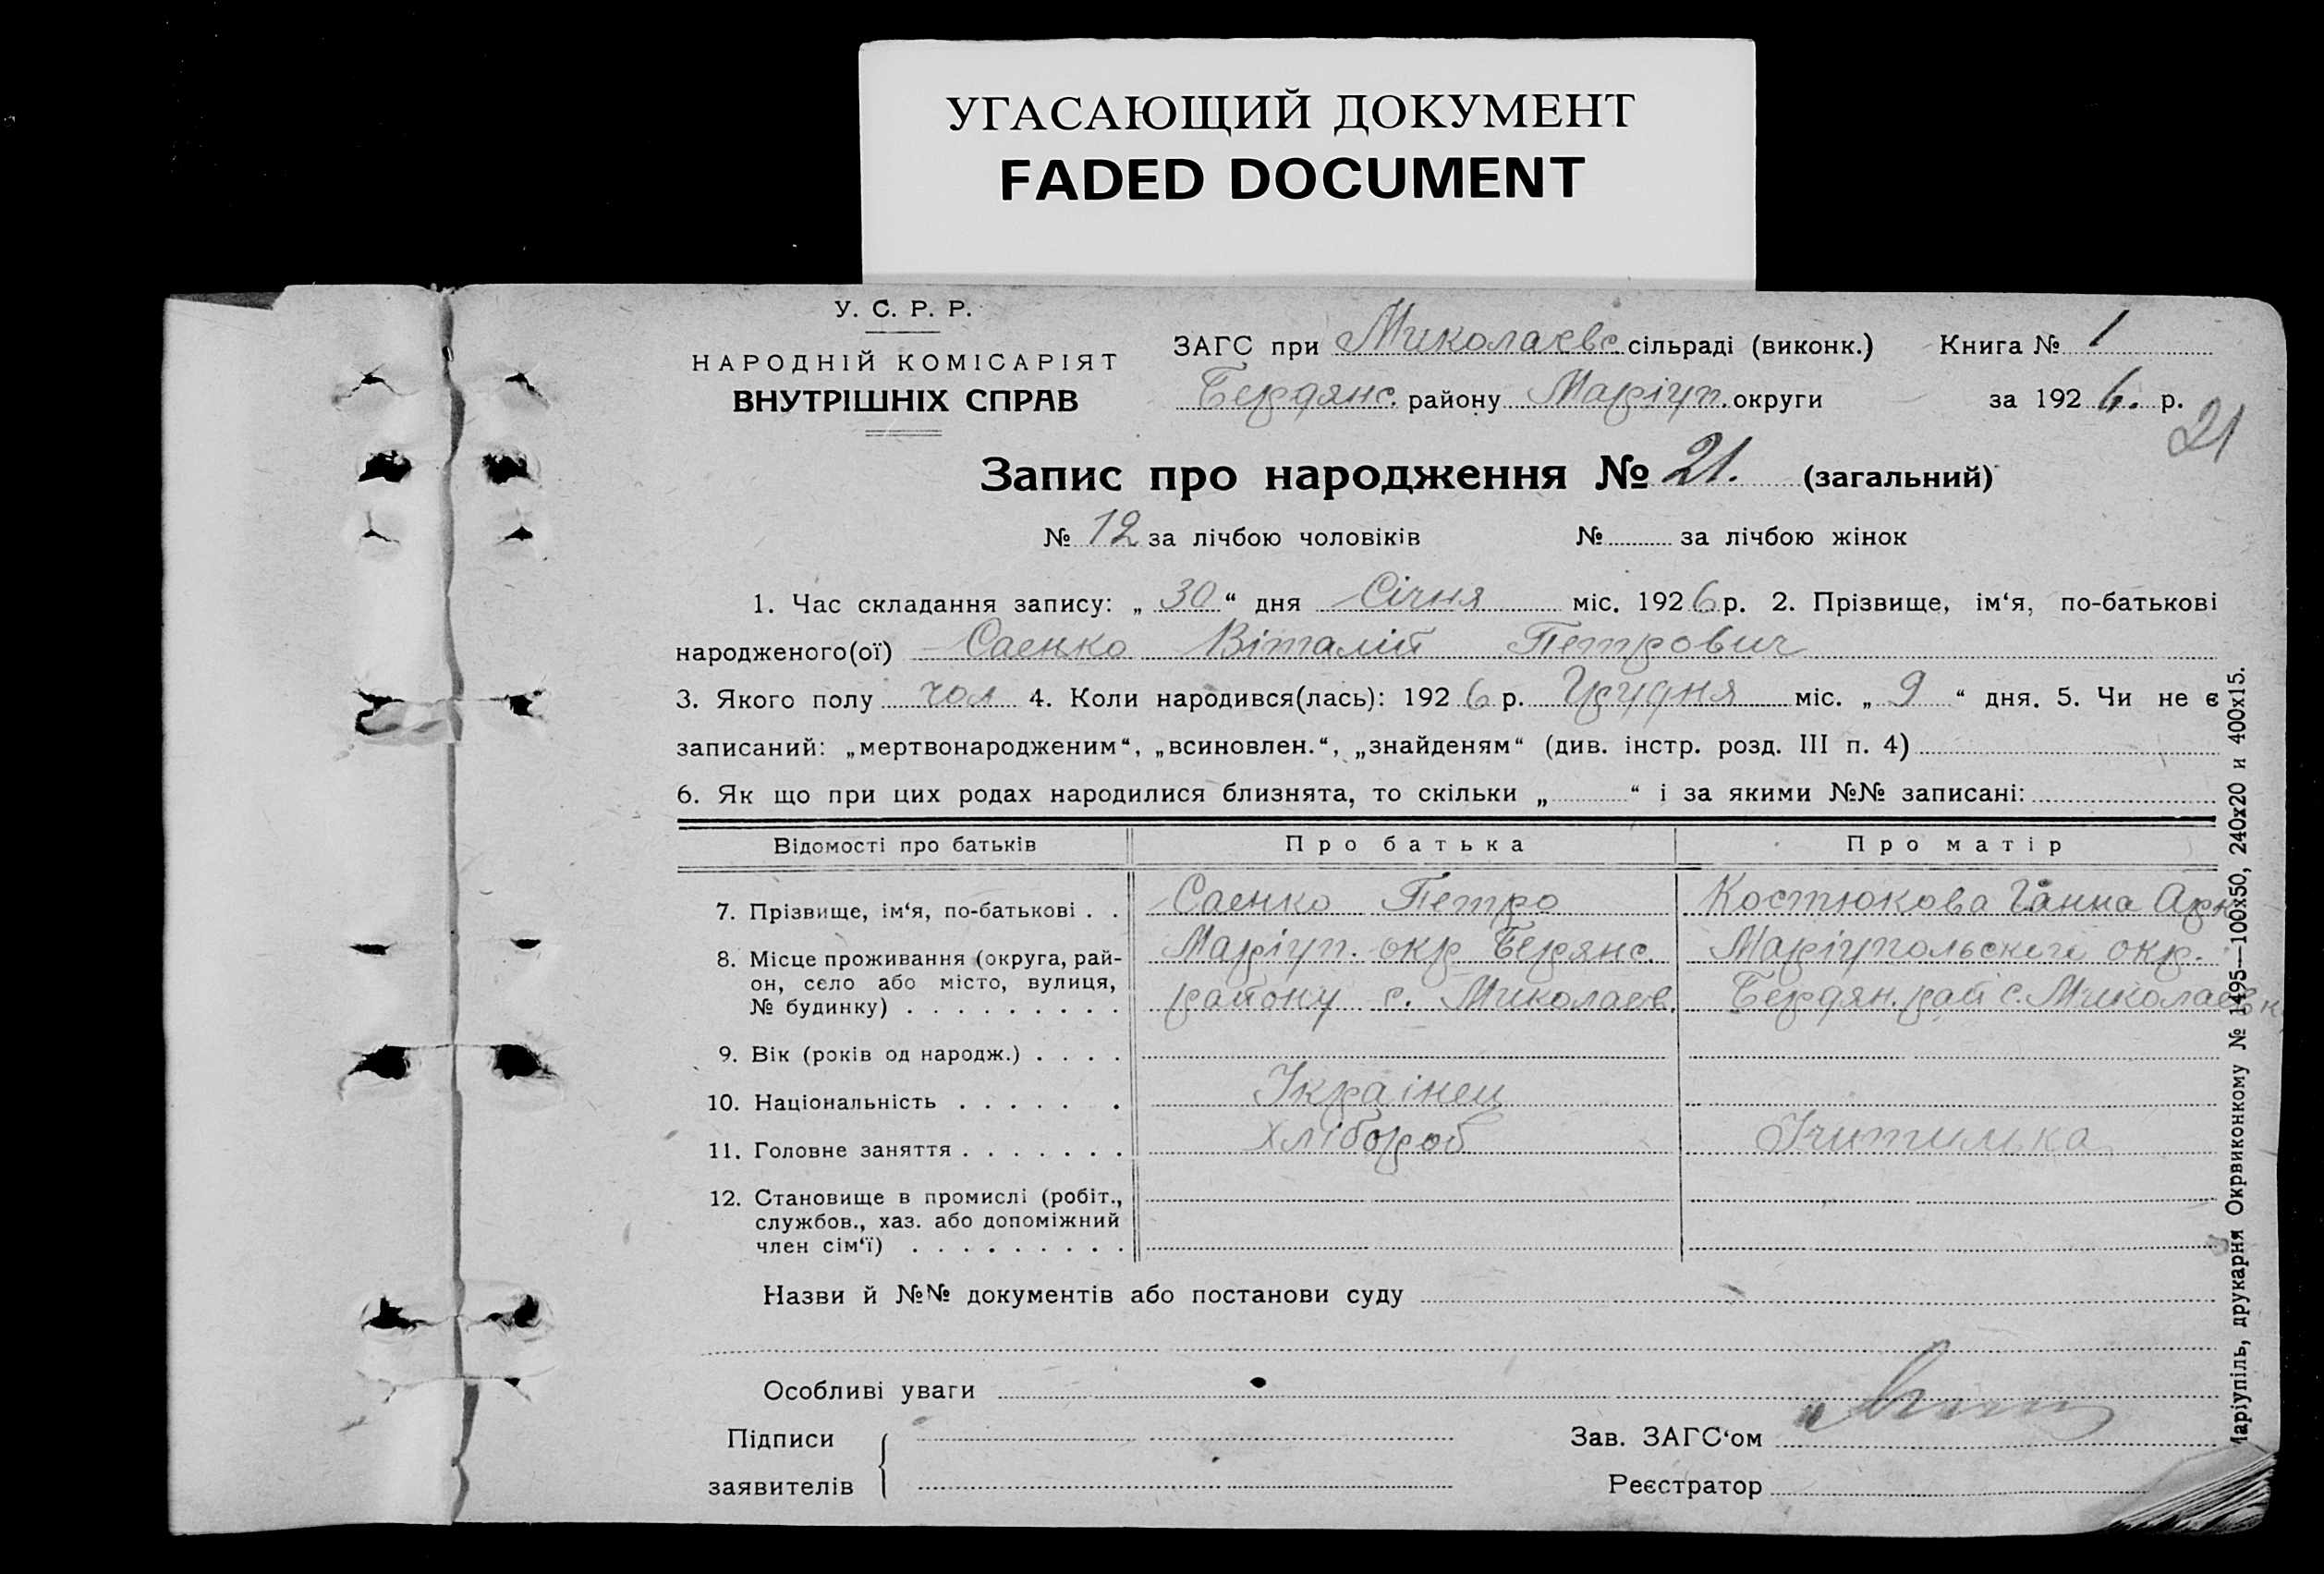 УГАСАЮЩИЙ ДОКУМЕНТ
FADED DOCUMENT
У. С. Р. Р.
НАРОДНІЙ КОМІСАРІЯТ
ВНУТРІШНІХ СПРАВ
ЗАГС при Миколаєвс. сільраді (виконк.) Книга № 1
Бердянс. району Маріуп. округи за 1926. р.
21
Запис про народження № 21. (загальний)
№ 12 за лічбою чоловіків № за лічбою жінок
1. Час складання запису: „ 30 “ дня Січня міс. 1926 р. 2. Прізвище, ім‘я, по-батькові
народженого(ої) Саенко Віталій Петрович
3. Якого полу чол 4. Коли народився(лась): 1926 р. Грудня міс. „ 9 “ дня. 5. Чи не є
записаний: „мертвонародженим“, „всиновлен.“, „знайденям“ (див. інстр. розд. III п. 4)
6. Як що при цих родах народилися близнята, то скільки „ “ і за якими №№ записані:
Відомості про батьків Про батька Про матір
7. Прізвище, ім‘я, по-батькові . . Саенко Петро Костюкова Ганна Арк
8. Місце проживання (округа, рай- Маріуп. окр Берянс. Маріупольскего окр.
он, село або місто, вулиця,
№ будинку) . . . . . . . . . району с. Миколаєв. Бердян. рай с. Миколаєвк
9. Вік (років од народж.) . . . .
10. Національність . . . . . . Українец
11. Головне заняття . . . . . . . Хлібороб Учителька
12. Становище в промислі (робіт.,
службов., хаз. або допоміжний
член сім‘ї) . . . . . . . . .
Назви й №№ документів або постанови суду
Особливі уваги
Підписи
заявителів
Зав. ЗАГС‘ом
Реєстратор
Маріупіль, друкарня Окрвиконкому № 1495—100x50, 240x20 и 400x15.